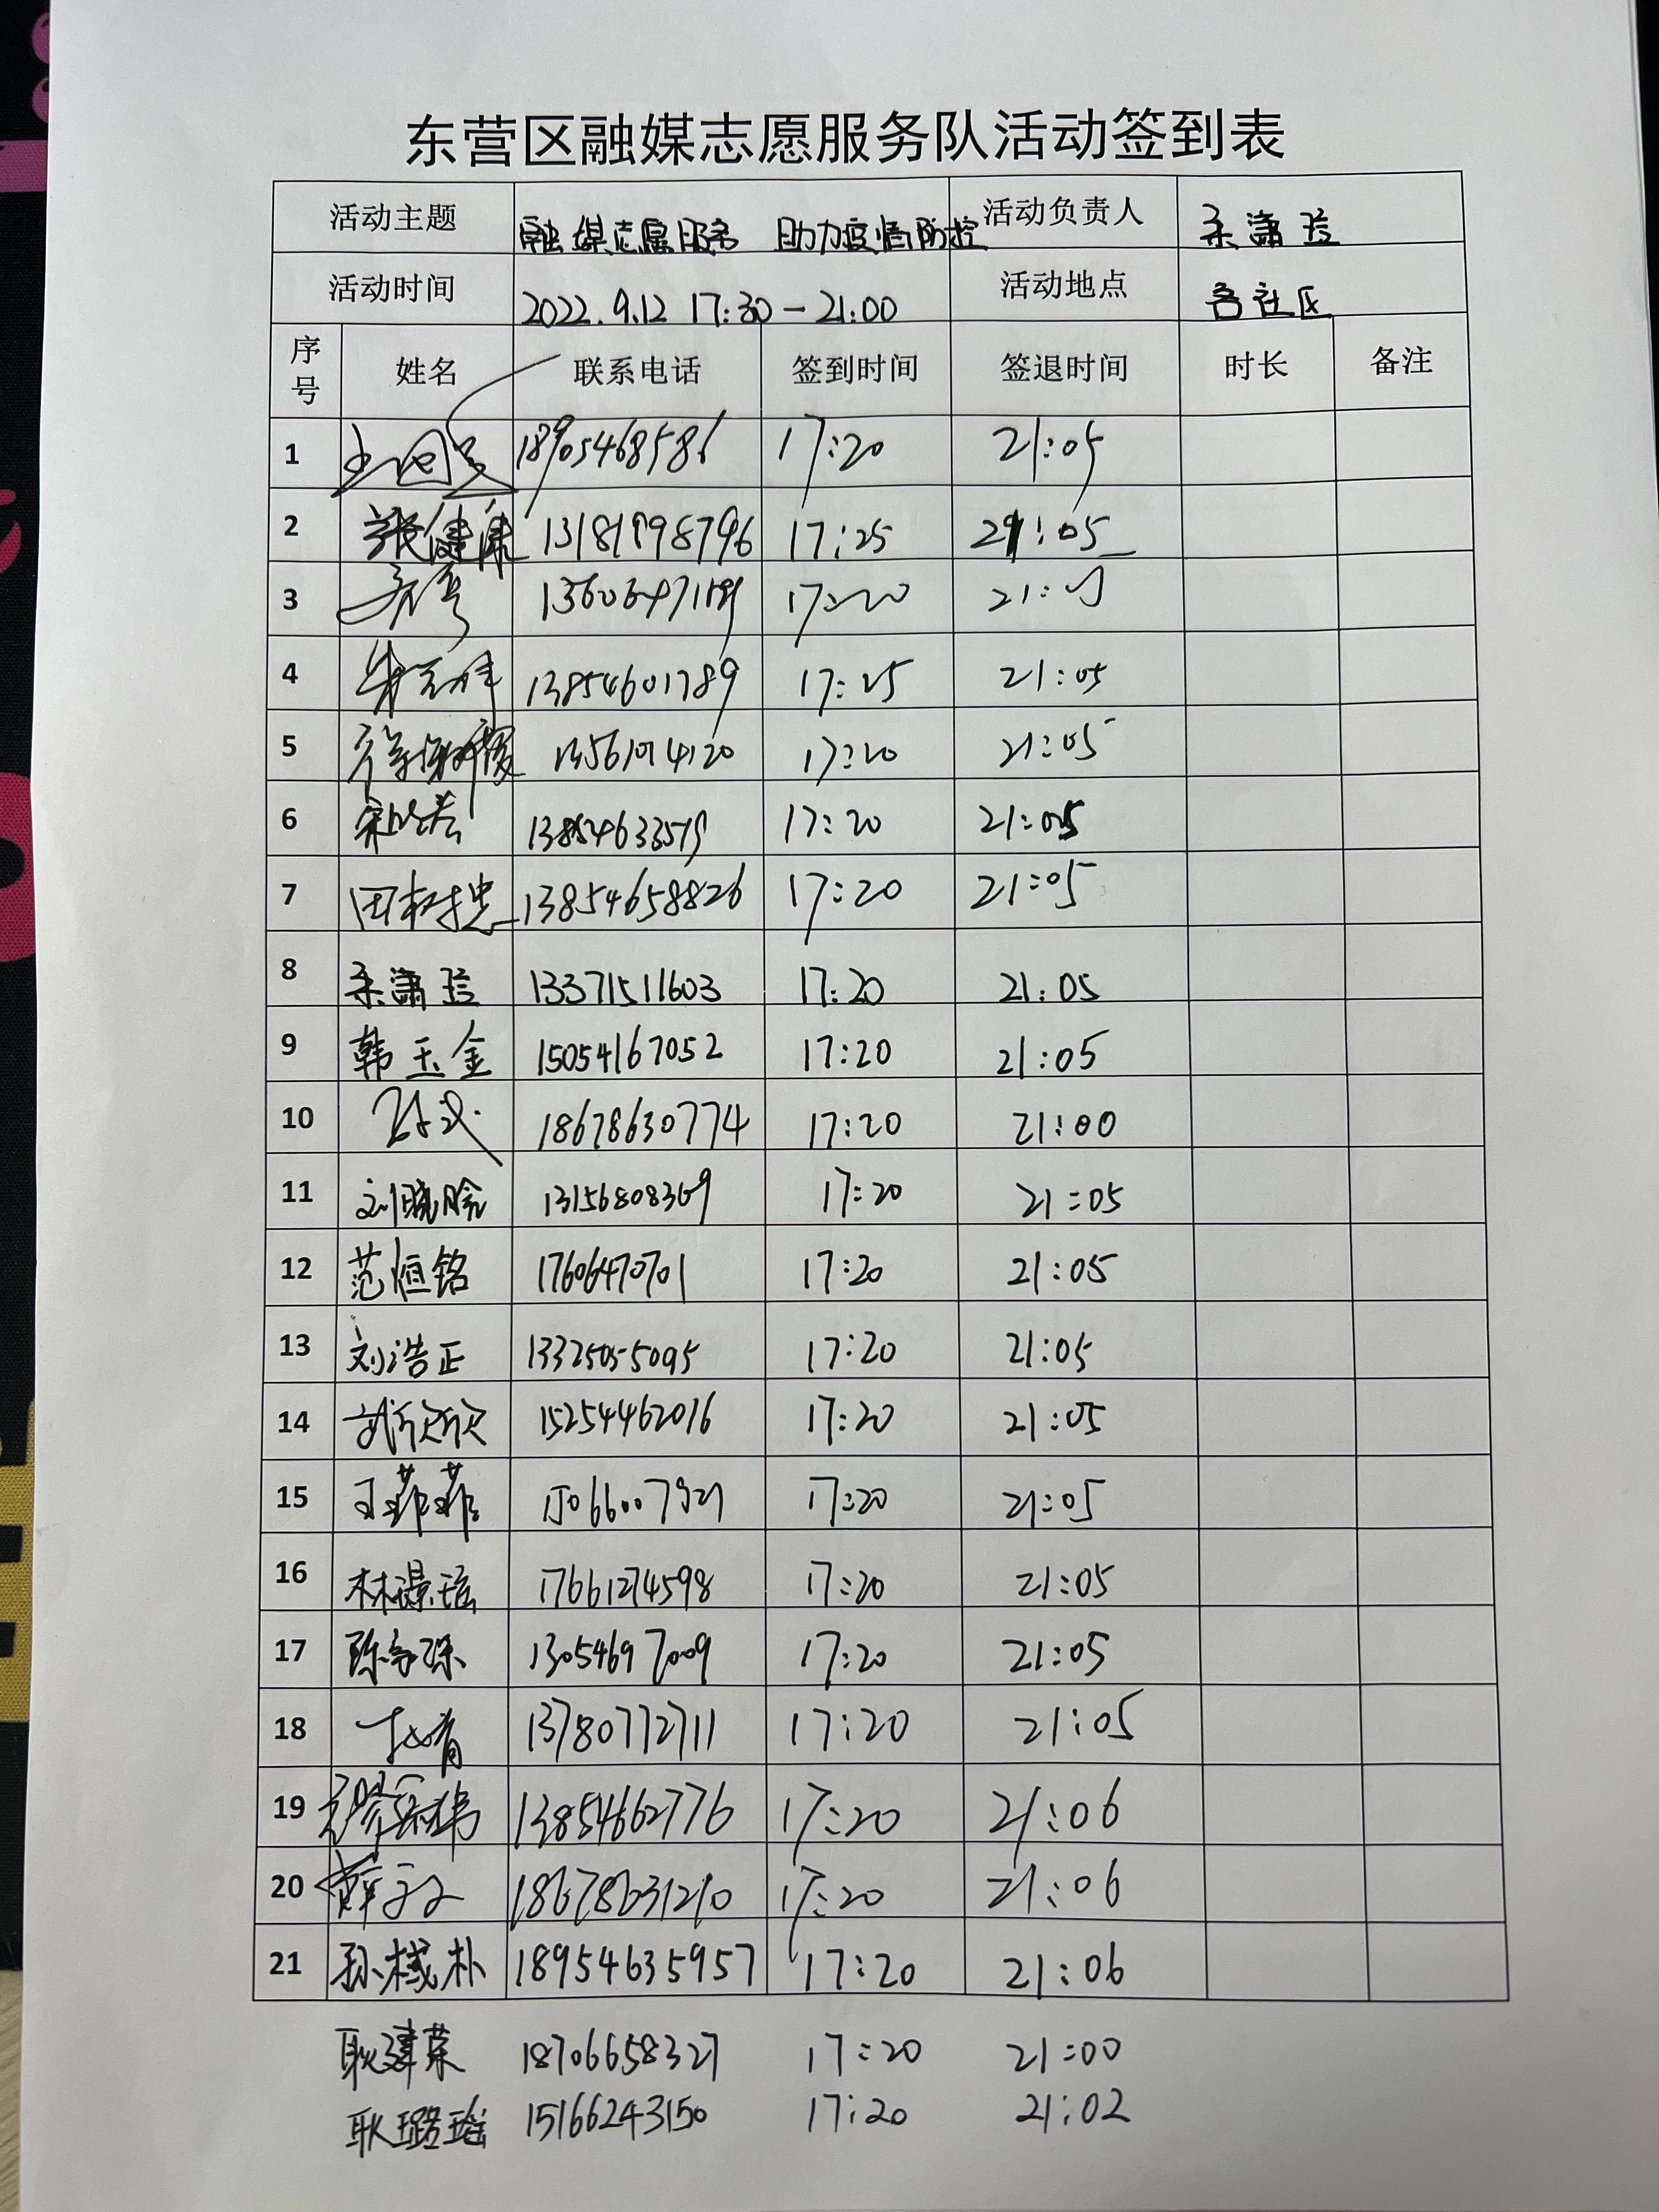 东营区融媒志愿服务队活动签到表
活动主题 融媒志愿服务 助力疫情防控 活动负责人
活动时间 2022.9.12 17:30-21:00 活动地点 各社区
序号 姓名 联系电话 签到时间 签退时间 时长 备注
1 18905468586 17:20 21:05
2 张健康 17:25 21:05
3 17:20 21:05
4 13854601789 17:25 21:05
5 17:20 21:05
6 13854633579 17:20 21:05
7 13854658826 17:20 21:05
8 13371511603 17:20 21:05
9 韩玉金 15054167052 17:20 21:05
10 18678630774 17:20 21:00
11 刘晓晗 13156808369 17:20 21:05
12 范恒铭 17606470701 17:20 21:05
13 刘浩正 13325055095 17:20 21:05
14 武欣欣 15254462016 17:20 21:05
15 王菲菲 15066007921 17:20 21:05
16 17661274598 17:20 21:05
17 13054697009 17:20 21:05
18 13780772711 17:20 21:05
19 13854662776 17:20 21:06
20 18678631210 17:20 21:06
21 孙棫朴 18954635957 17:20 21:06
耿建荣 18706658327 17:20 21:00
耿璐瑶 15166243150 17:20 21:02